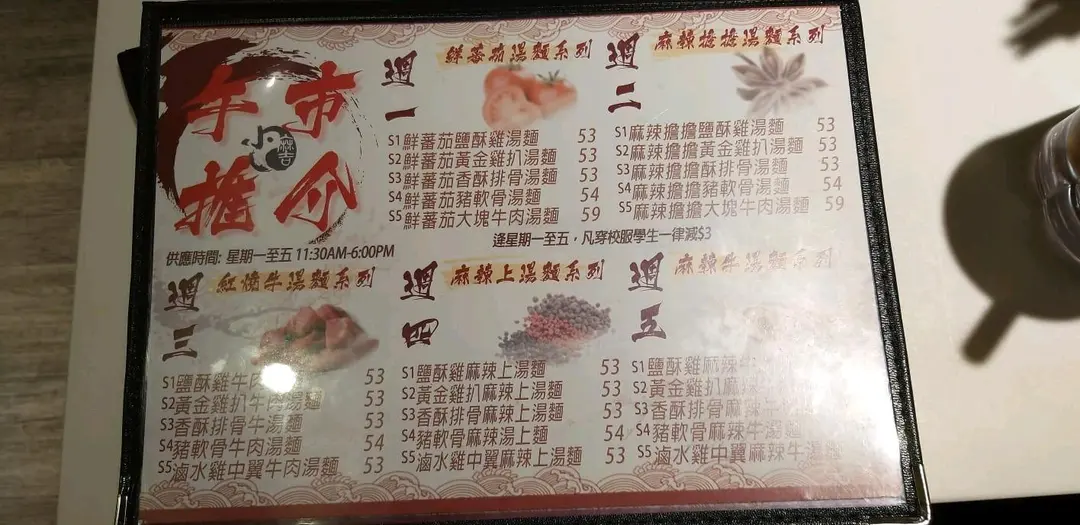 午市
推介
小麻吉
供應時間: 星期一至五 11:30AM-6:00PM
週一
鮮蕃茄湯麵系列
S1鮮蕃茄鹽酥雞湯麵 53
S2鮮蕃茄黃金雞扒湯麵 53
S3鮮蕃茄香酥排骨湯麵 53
S4鮮蕃茄豬軟骨湯麵 54
S5鮮蕃茄大塊牛肉湯麵 59
週二
麻辣擔擔湯麵系列
S1麻辣擔擔鹽酥雞湯麵 53
S2麻辣擔擔黃金雞扒湯麵 53
S3麻辣擔擔香酥排骨湯麵 53
S4麻辣擔擔豬軟骨湯麵 54
S5麻辣擔擔大塊牛肉湯麵 59
逢星期一至五，凡穿校服學生一律減$3
週三
紅燒牛湯麵系列
S1鹽酥雞牛肉湯麵 53
S2黃金雞扒牛肉湯麵 53
S3香酥排骨牛湯麵 53
S4豬軟骨牛肉湯麵 54
S5滷水雞中翼牛肉湯麵 53
週四
麻辣上湯麵系列
S1鹽酥雞麻辣上湯麵 53
S2黃金雞扒麻辣上湯麵 53
S3香酥排骨麻辣上湯麵 53
S4豬軟骨麻辣湯上麵 54
S5滷水雞中翼麻辣上湯麵 53
週五
麻辣牛湯麵系列
S1鹽酥雞麻辣牛
S2黃金雞扒麻辣
S3香酥排骨麻辣牛
S4豬軟骨麻辣牛湯麵
S5滷水雞中翼麻辣牛湯麵